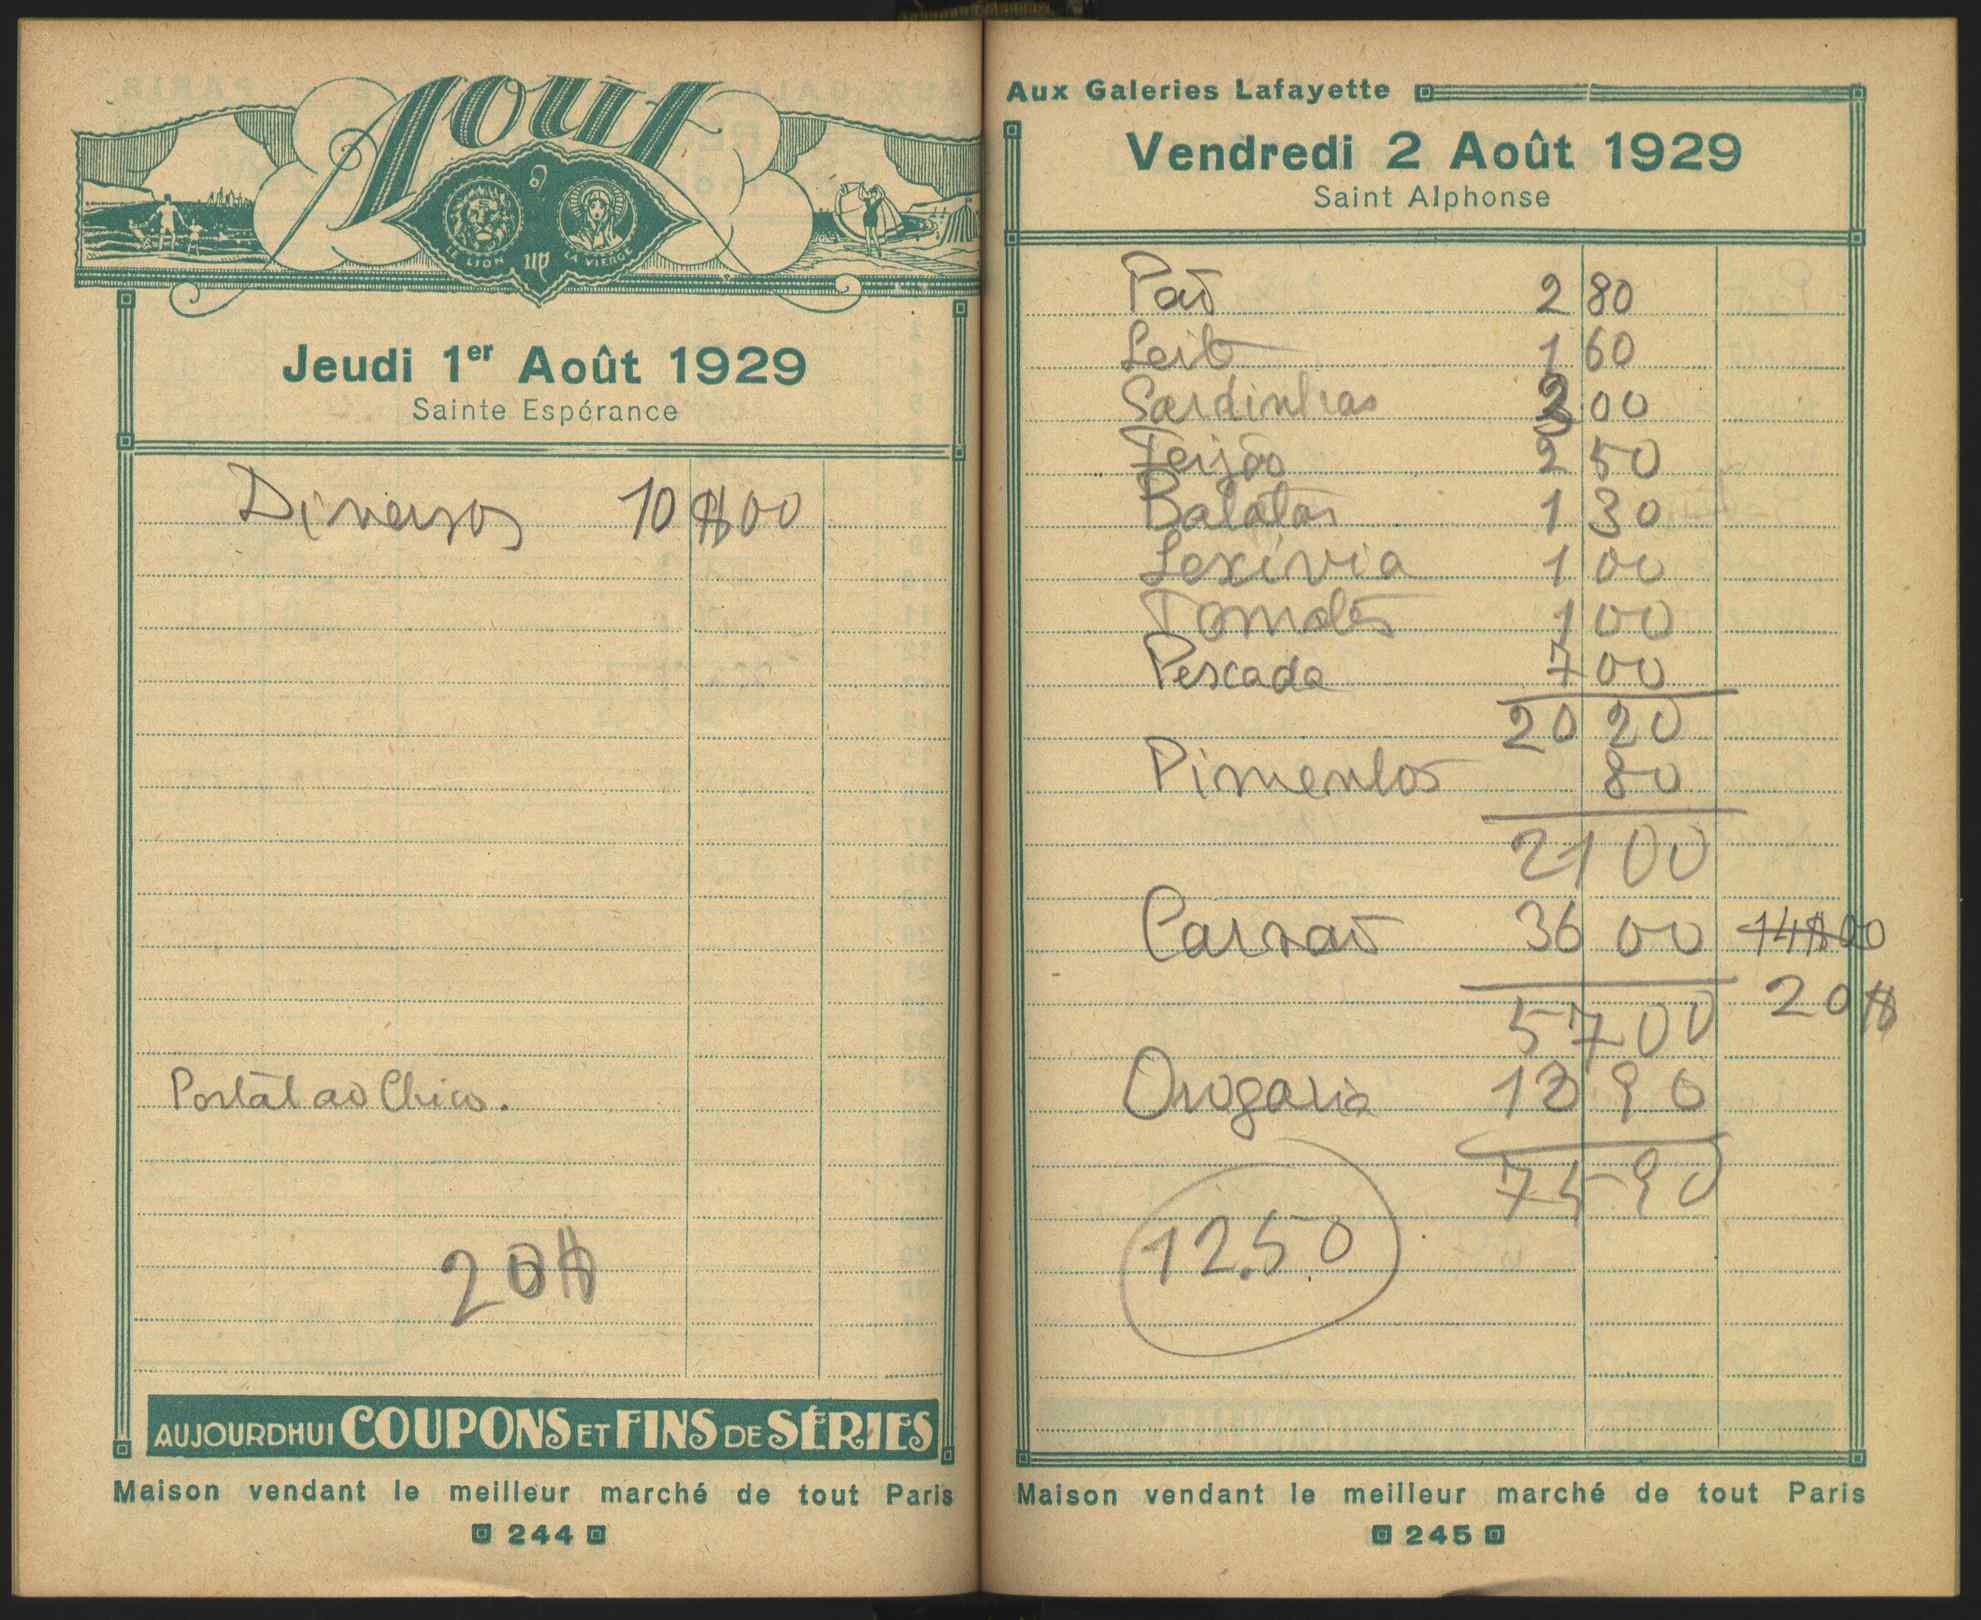 Août
LE LION
LA VIERGE
Jeudi 1er Août 1929
Sainte Espérance
Diversos 10$00
Postal ao Chico.
20$
AUJOURDHUI COUPONS ET FINS DE SÉRIES
Maison vendant le meilleur marché de tout Paris
244
Aux Galeries Lafayette
Vendredi 2 Août 1929
Saint Alphonse
Pão 2 80
Leite 1 60
Sardinhas 3 00
Feijão 2 50
Batatas 1 30
Lexivia 1 00
Tomates 1 00
Pescada 7 00
20 20
Pimentos 80
21 00
Carvão 36 00 14$00
57 00 20$
Drogaria 18 90
75 90
12.50
Maison vendant le meilleur marché de tout Paris
245